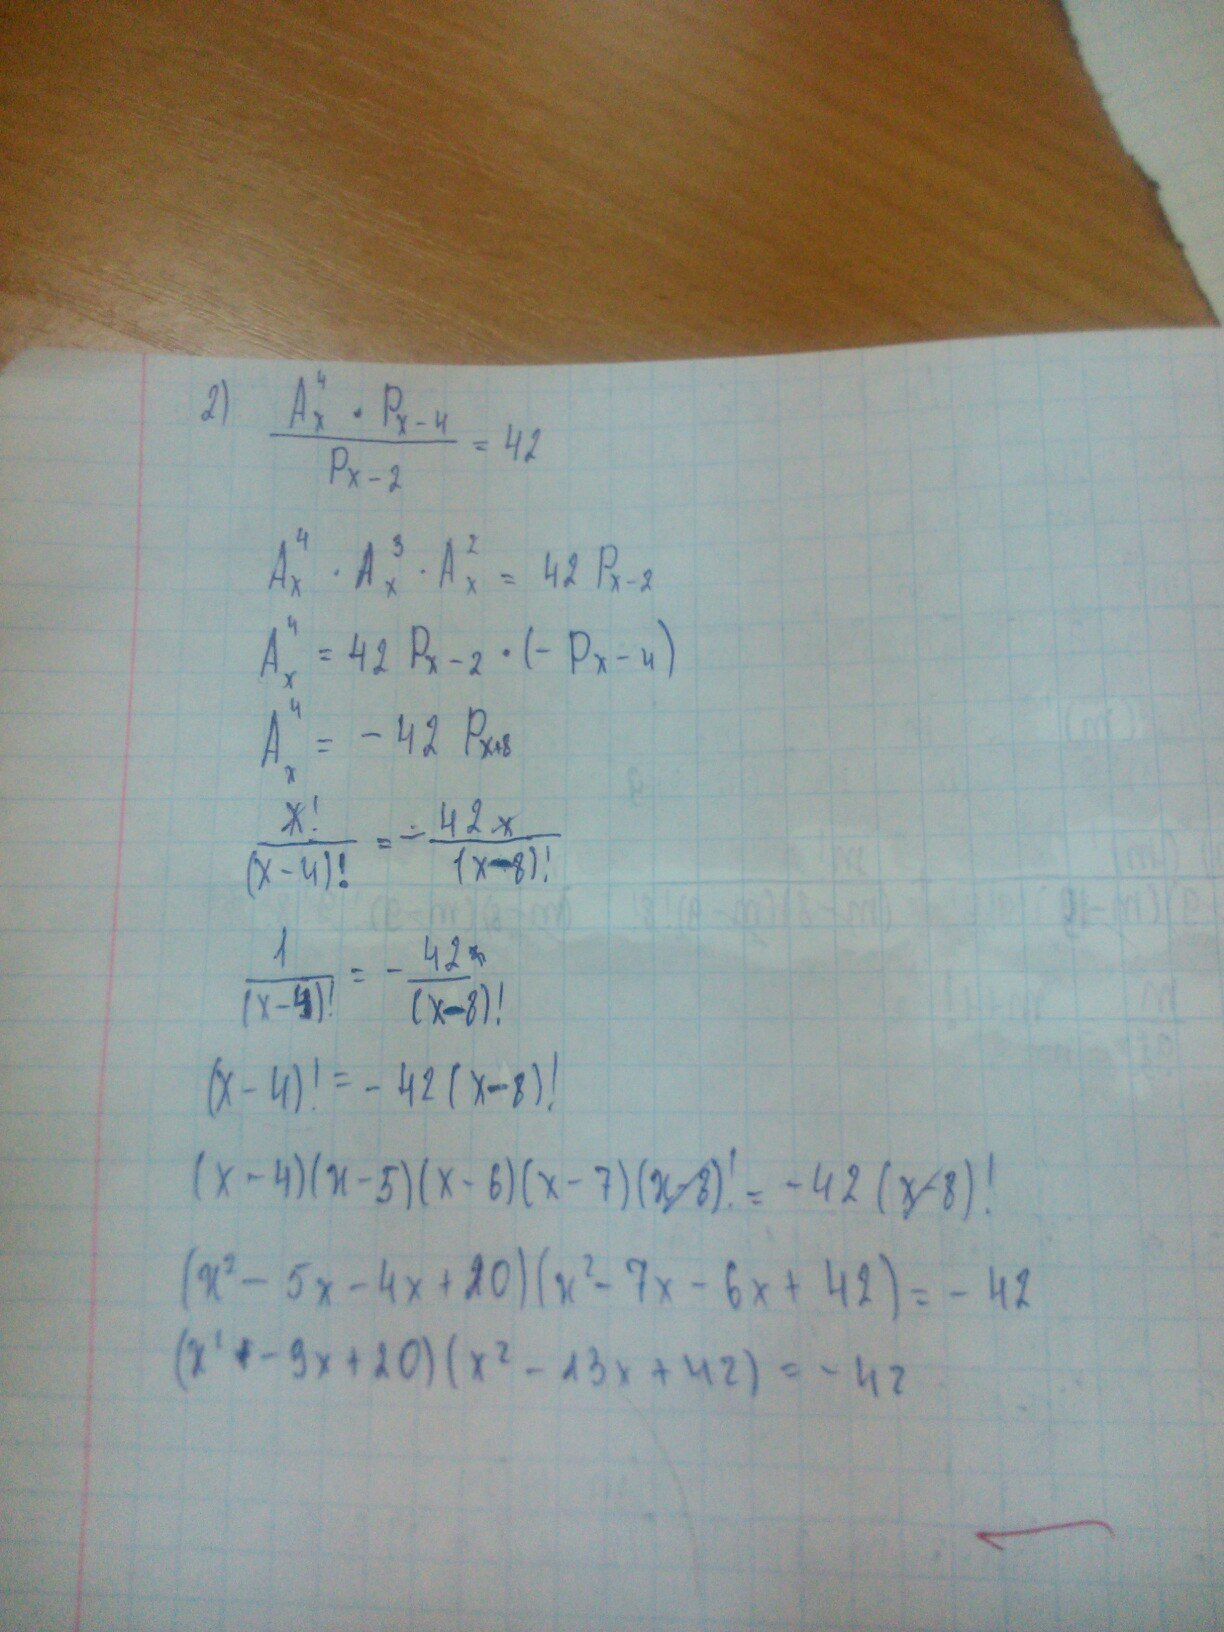 2) (A_x^4 · P_{x-4}) / P_{x-2} = 42
A_x^4 · A_x^3 · A_x^2 = 42 P_{x-2}
A_x^4 = 42 P_{x-2} · (- P_{x-4})
A_x^4 = - 42 P_{x+8}
x! / (x-4)! = - 42x / (x-8)!
1 / (x-4)! = - 42 / (x-8)!
(x-4)! = - 42 (x-8)!
(x-4)(x-5)(x-6)(x-7)(x-8)! = -42 (x-8)!
(x² - 5x - 4x + 20)(x² - 7x - 6x + 42) = - 42
(x² - 9x + 20)(x² - 13x + 42) = - 42